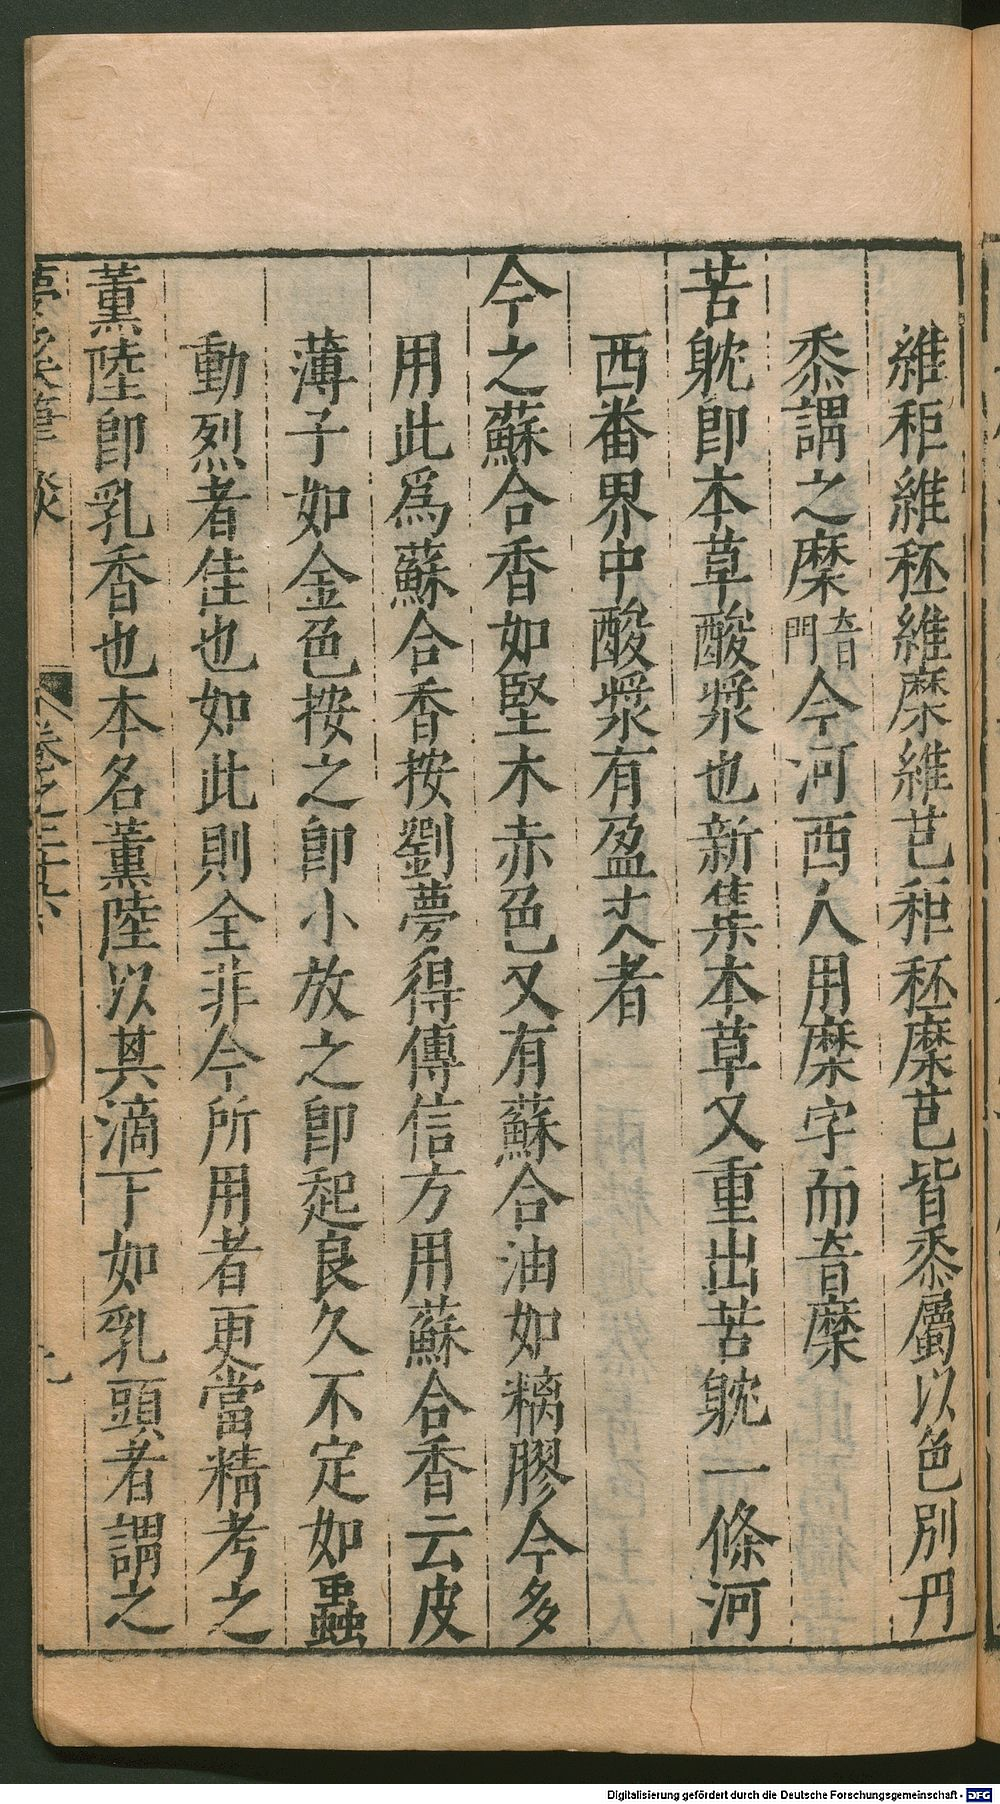 維秬維秠維穈維芑秬秠穈芑皆黍屬以色別丹
黍謂之穈音門今河西人用穈字而音糜
苦躭即本草酸漿也新集本草又重出苦躭一條河
西番界中酸漿有盈丈者
今之蘇合香如堅木赤色又有蘇合油如䊛膠今多
用此爲蘇合香按劉夢得傳信方用蘇合香云皮
薄子如金色按之即小放之即起良久不定如蟲
動烈者佳也如此則全非今所用者更當精考之
薰陸即乳香也本名薰陸以其滴下如乳頭者謂之
夢溪筆談
卷之二十六
九
Digitalisierung gefördert durch die Deutsche Forschungsgemeinschaft - DFG